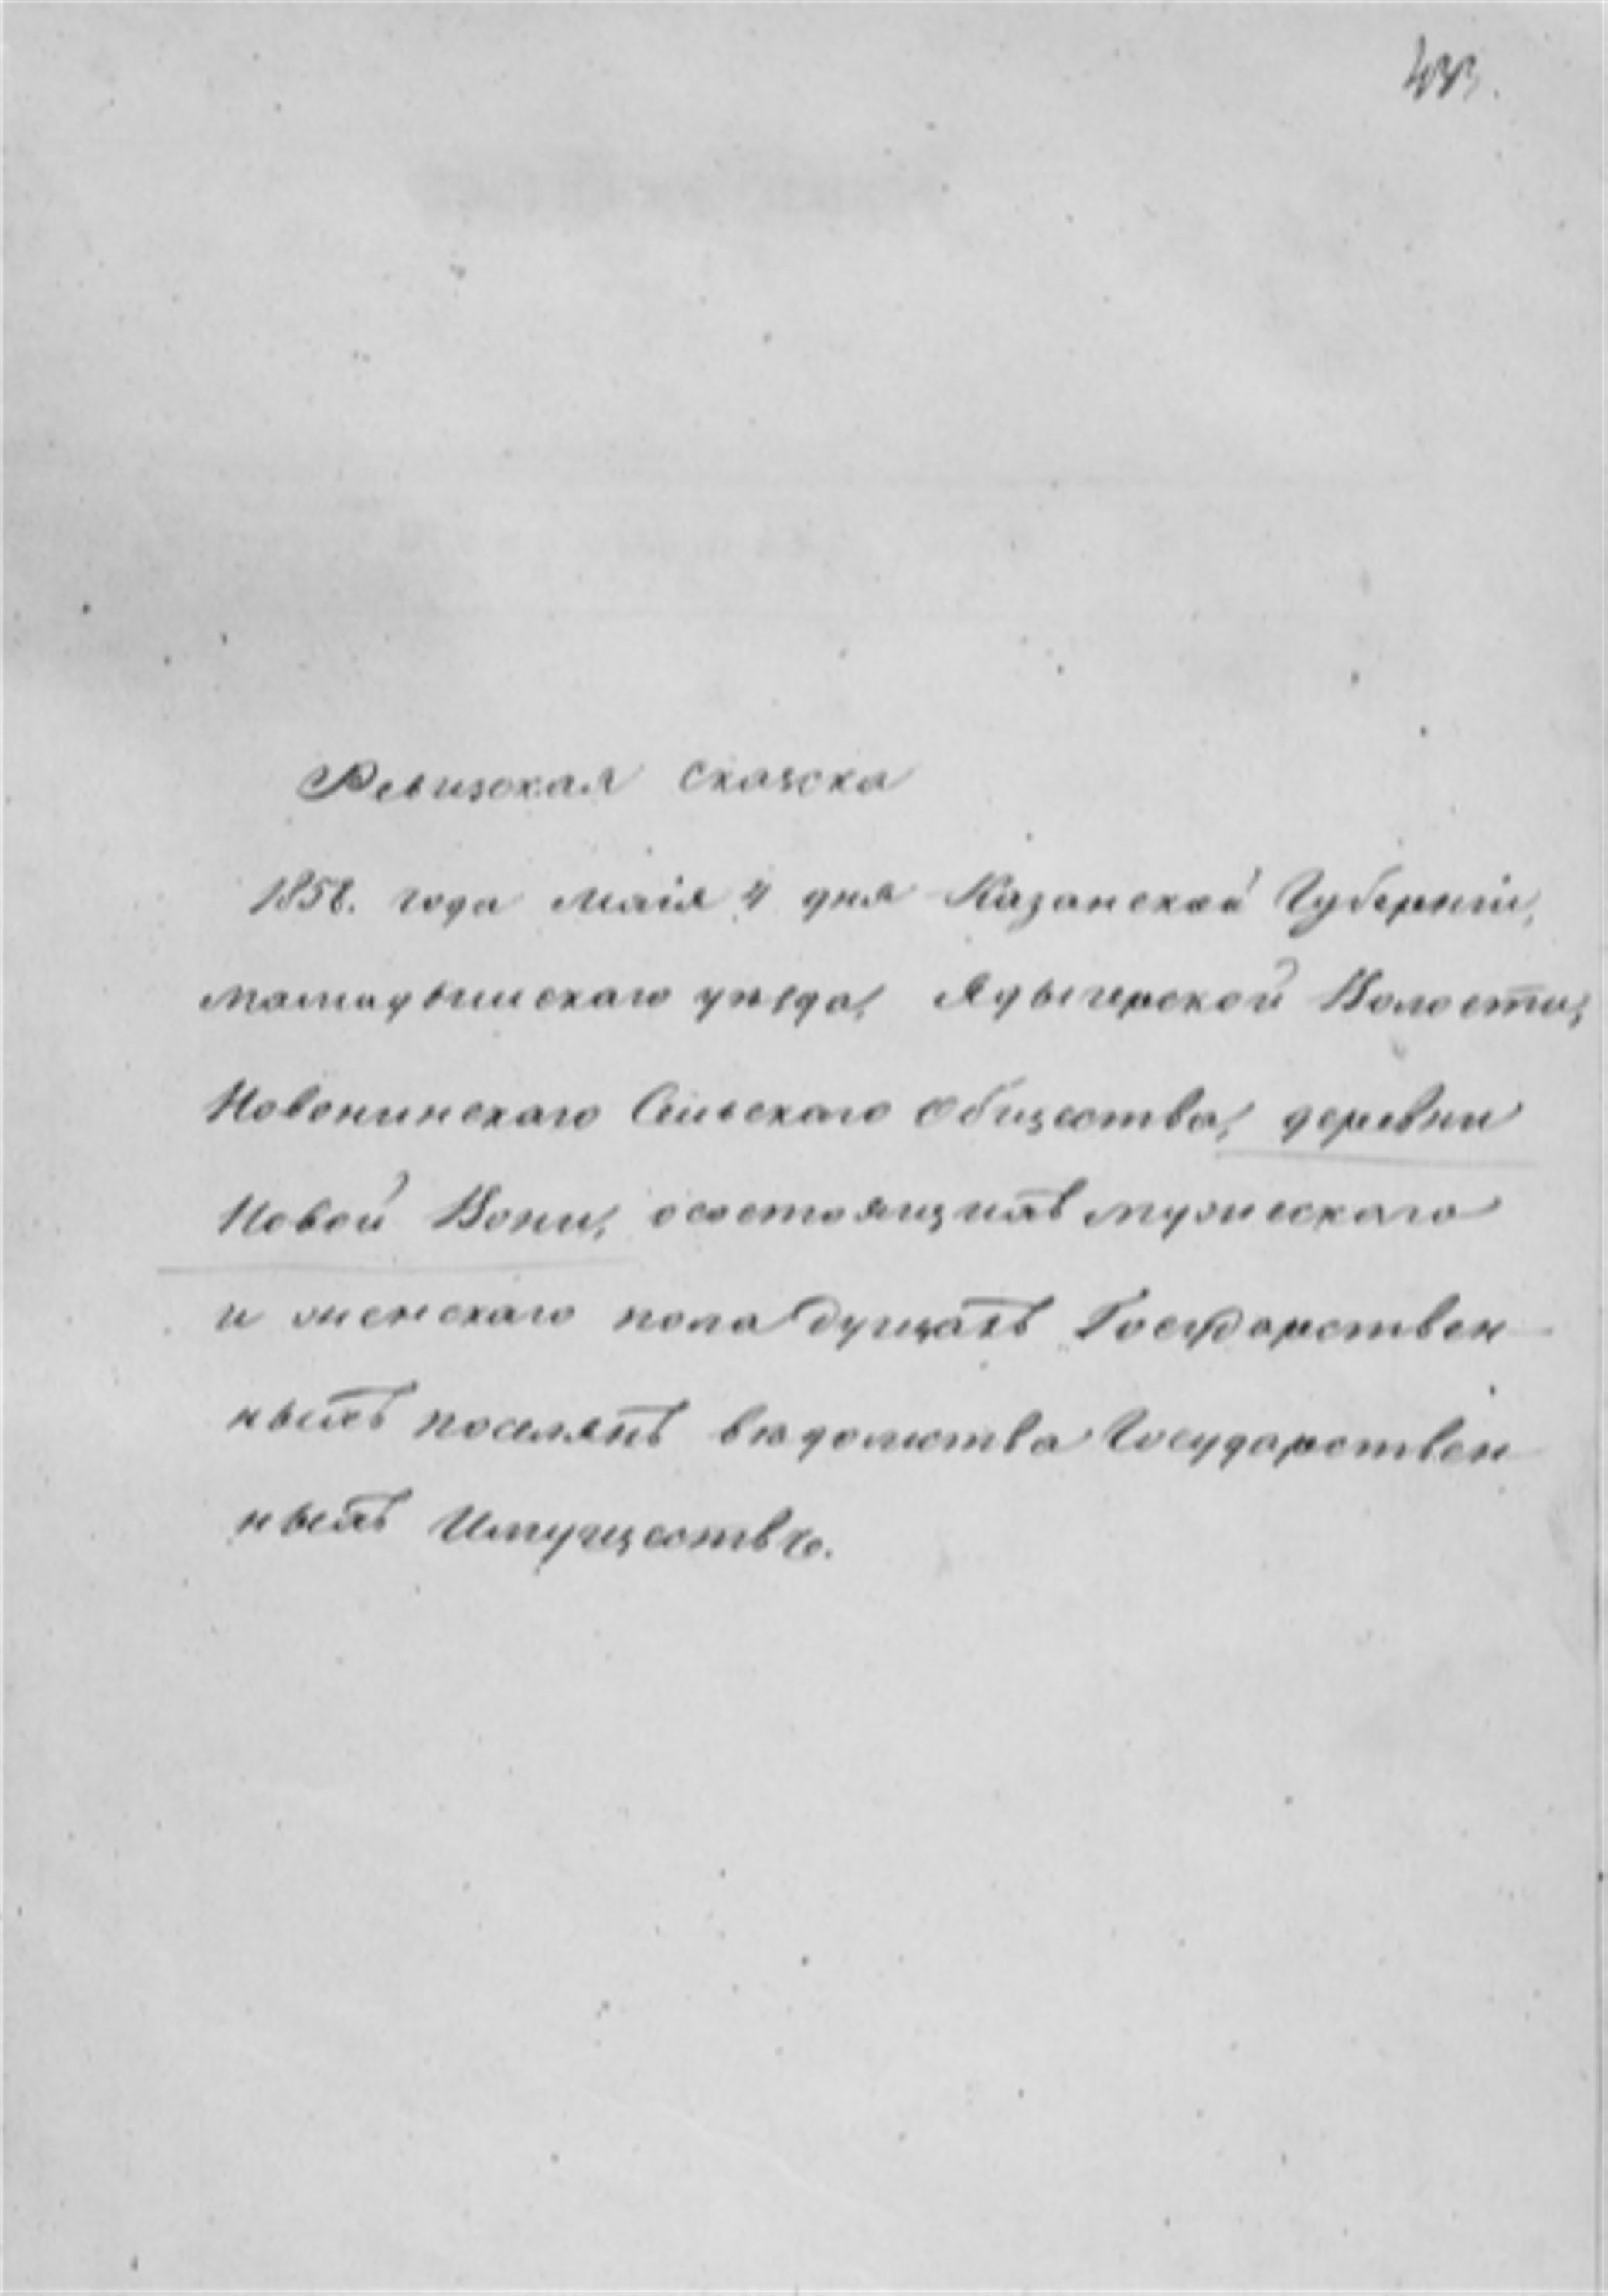 433.
Ревизская сказска
1858. года маія 4 дня Казанской Губерніи,
мамадышскаго уѣзда, Ядыгерской Волости,
Новонинскаго Сельскаго общества, деревни
Новой Вони, осостоящихъ мужескаго
и женскаго пола душахъ Государствен
ныхъ поселянъ вѣдомства Государствен
ныхъ Имуществъ.